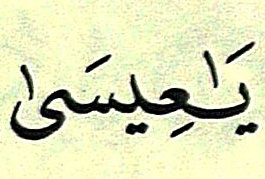 يَٰعِيسَىٰ